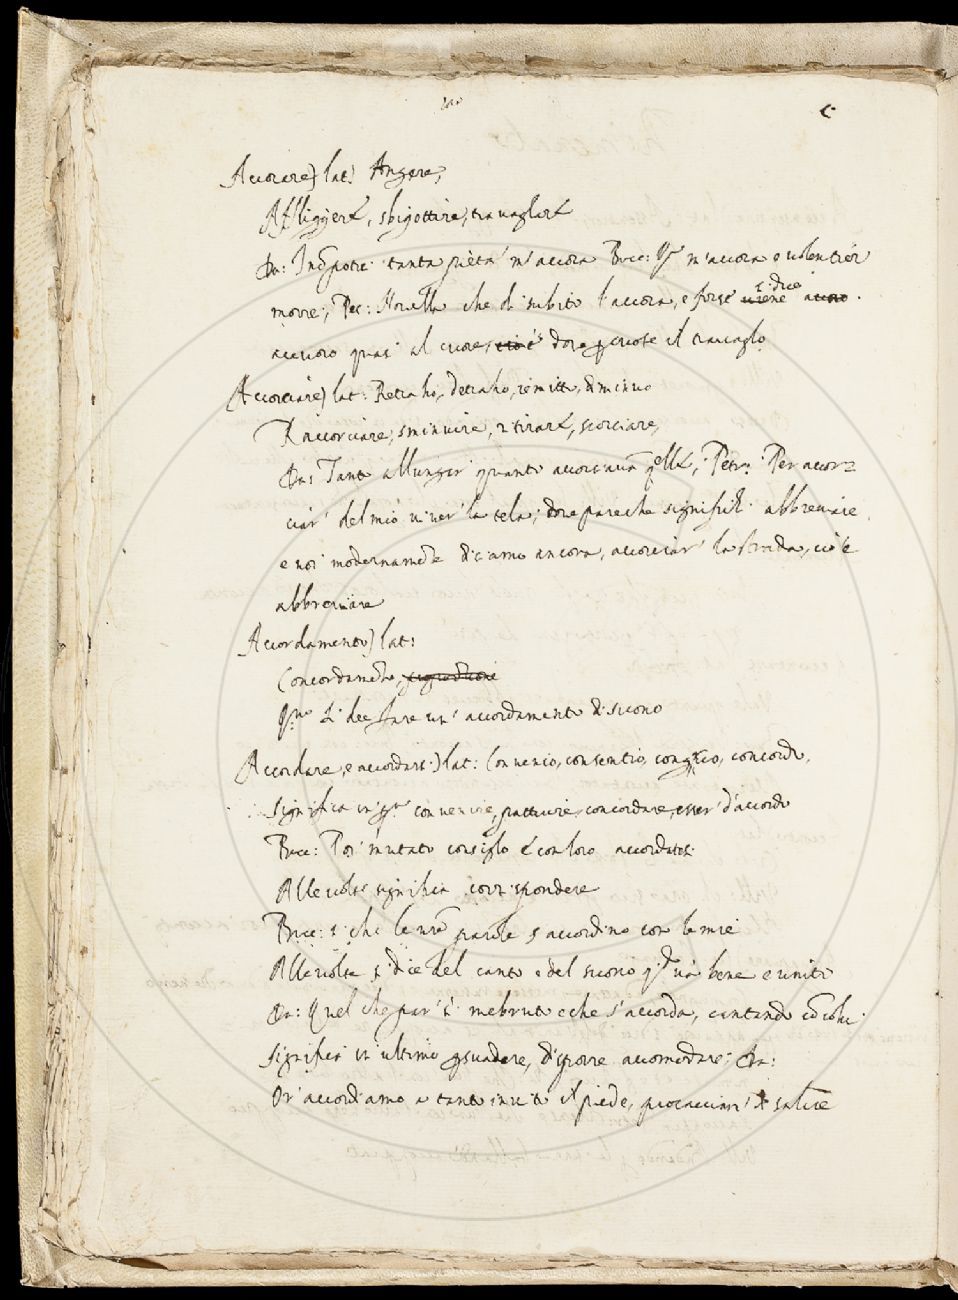 Accorare) lat: Angere,
Affligger&, sbigottire, travaglar&
Da: tanta pietà m'accora Bocc: m'accora e volentier
morrei, Pet: che di subito l'accora, e forse si dice accoro.
accuoro quasi al cuore, cio è dove percuote il travaglo
Accorciare) lat: Retraho, detraho, remitto, diminuo
Raccorciare, sminuire, ritirar&, scorciare,
Da: Tanto allungar quanto accorciavan quell&, Petr: Per accor=
ciar' del mio viver' la tela; dove pare che significhi abbreviare,
e noi modernamēte diciamo ancora, accorciar' la strada, cioè
abbreviare
Accordamento) lat:
Concordamēto,
si dee fare un' accordamento di suono
Accordare, e accordarsi) lat: Convenio, consentio, congruo, concordo,
Significa in convenire, pattuire, concordare, esser' d'accordo
Bocc: Poi mutato consiglo & con loro accordatosi
Alle volte significa corrispondere
Bocc: s' accordino con le mie
Alle volte si dice del canto e del suono và bene e unito
Da: Quel che par sì membruto e che s'accorda, cantando cō colui
Significa in ultimo persuadere, disporre accomodare; Da:
Or' accordiamo a tanto invito il piede, procacciam' di salire